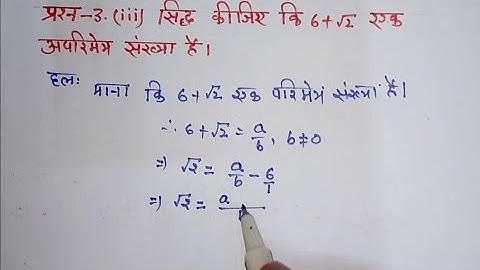 प्रश्न-3.(iii) सिद्ध कीजिए कि 6+√2 एक
अपरिमेय संख्या है।
हल: माना कि 6+√2 एक परिमेय संख्या है।
∴ 6+√2 = a/b, b≠0
=) √2 = a/b - 6/1
=) √2 = a